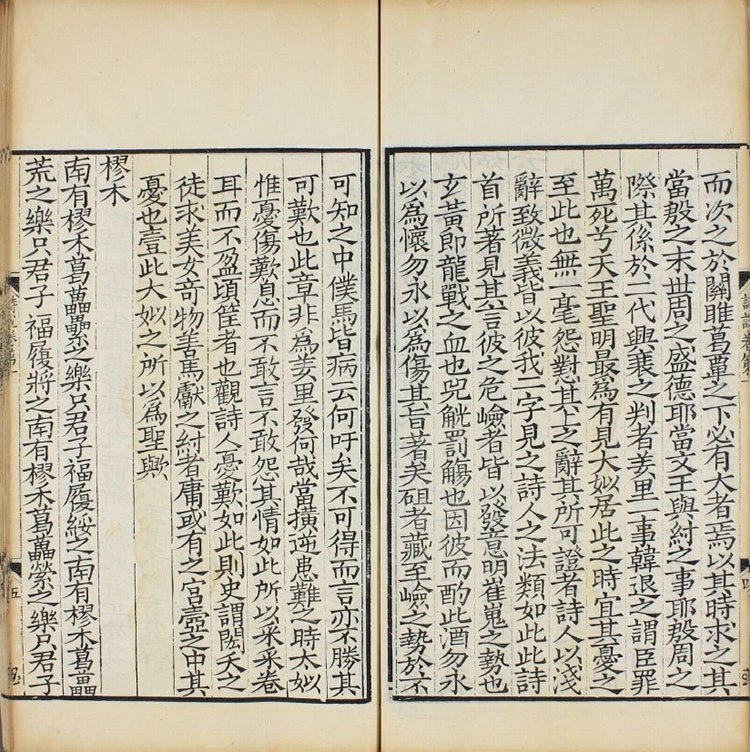 而次之於關雎葛覃之下必有大者焉以其時求之其
當殷之末世周之盛德耶當文王與紂之事耶殷周之
際其係於二代興衰之判者羑里一事韓退之謂臣罪
萬死兮天王聖明最為有見大姒居此之時宜其憂之
至此也無一毫怨懟其上之辭其所可證者詩人以淺
辭致微義皆以彼我二字見之詩人之法類如此此詩
首所著見其言彼之危嶮者皆以發意明崔嵬之勢也
玄黃即龍戰之血也兕觥罰觴也因彼而酌此酒勿永
以為懷勿永以為傷其旨著矣砠者藏至嶮之勢於不
可知之中僕馬皆病云何吁矣不可得而言亦不勝其
可歎也此章非為羑里發何哉當橫逆患難之時太姒
惟憂傷歎息而不敢言不敢怨其情如此所以采采卷
耳而不盈頃筐者也觀詩人憂歎如此則史謂閎夭之
徒求美女奇物善馬獻之紂者庸或有之宮壼之中其
憂也壹此大姒之所以為聖歟
樛木
南有樛木葛藟纍之樂只君子福履綏之南有樛木葛藟
荒之樂只君子福履將之南有樛木葛藟縈之樂只君子
五